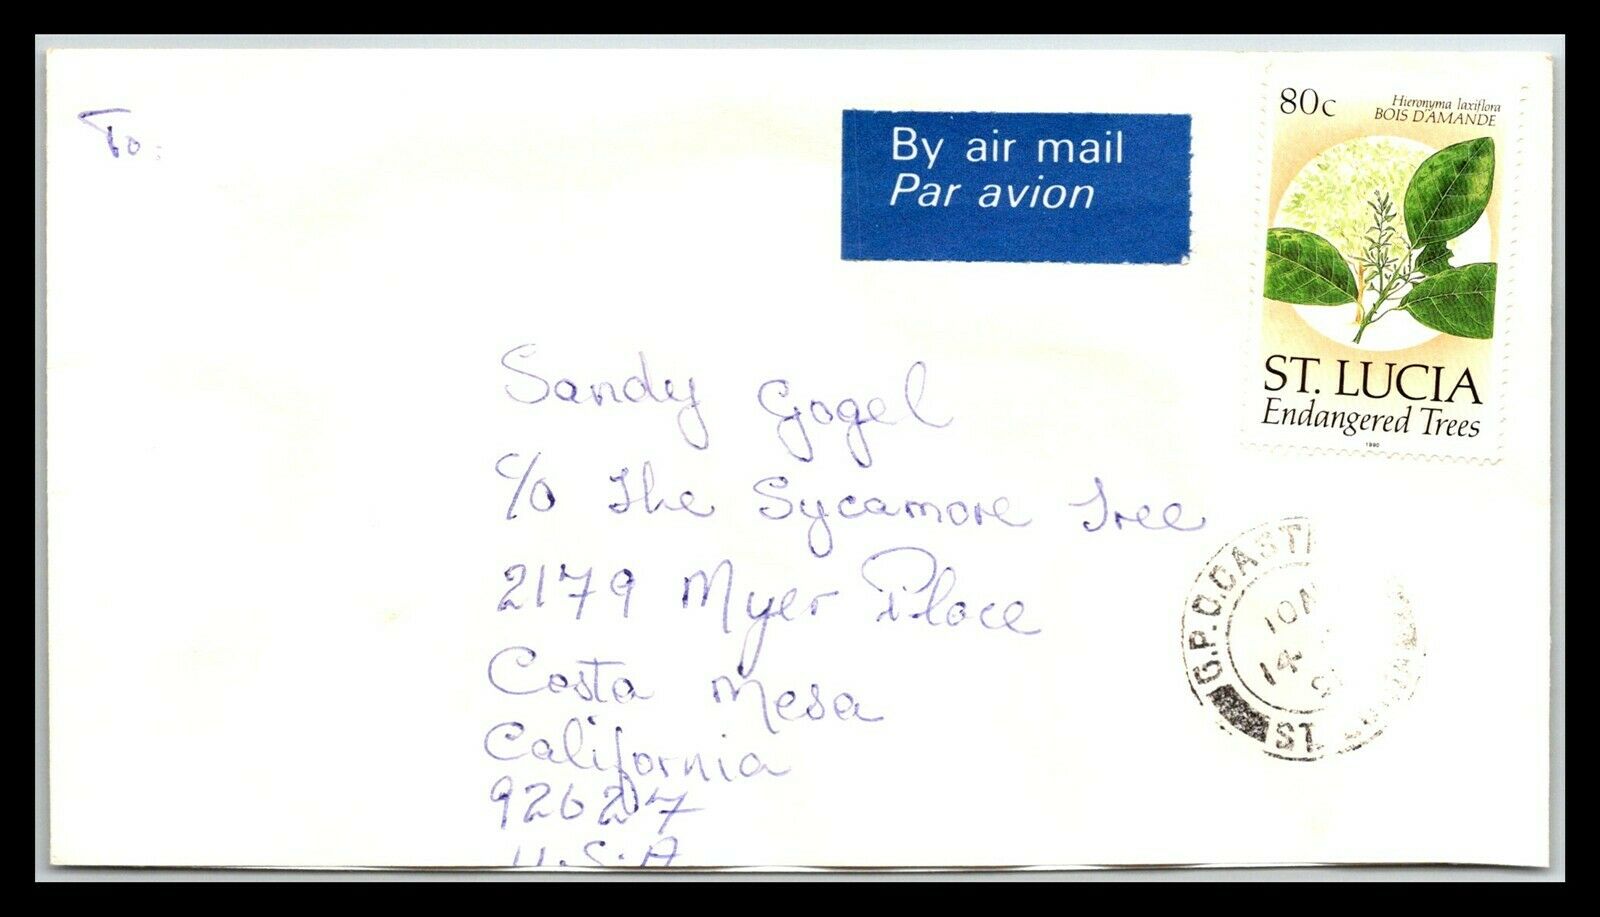 To:
By air mail
Par avion
80c
Hieronyma laxiflora
BOIS D'AMANDE
ST. LUCIA
Endangered Trees
1990
Sandy Gogel
c/o The Sycamore Tree
2179 Myer Place
Costa Mesa
California
92627
U.S.A
G.P.O. CAST
10A
14
ST.